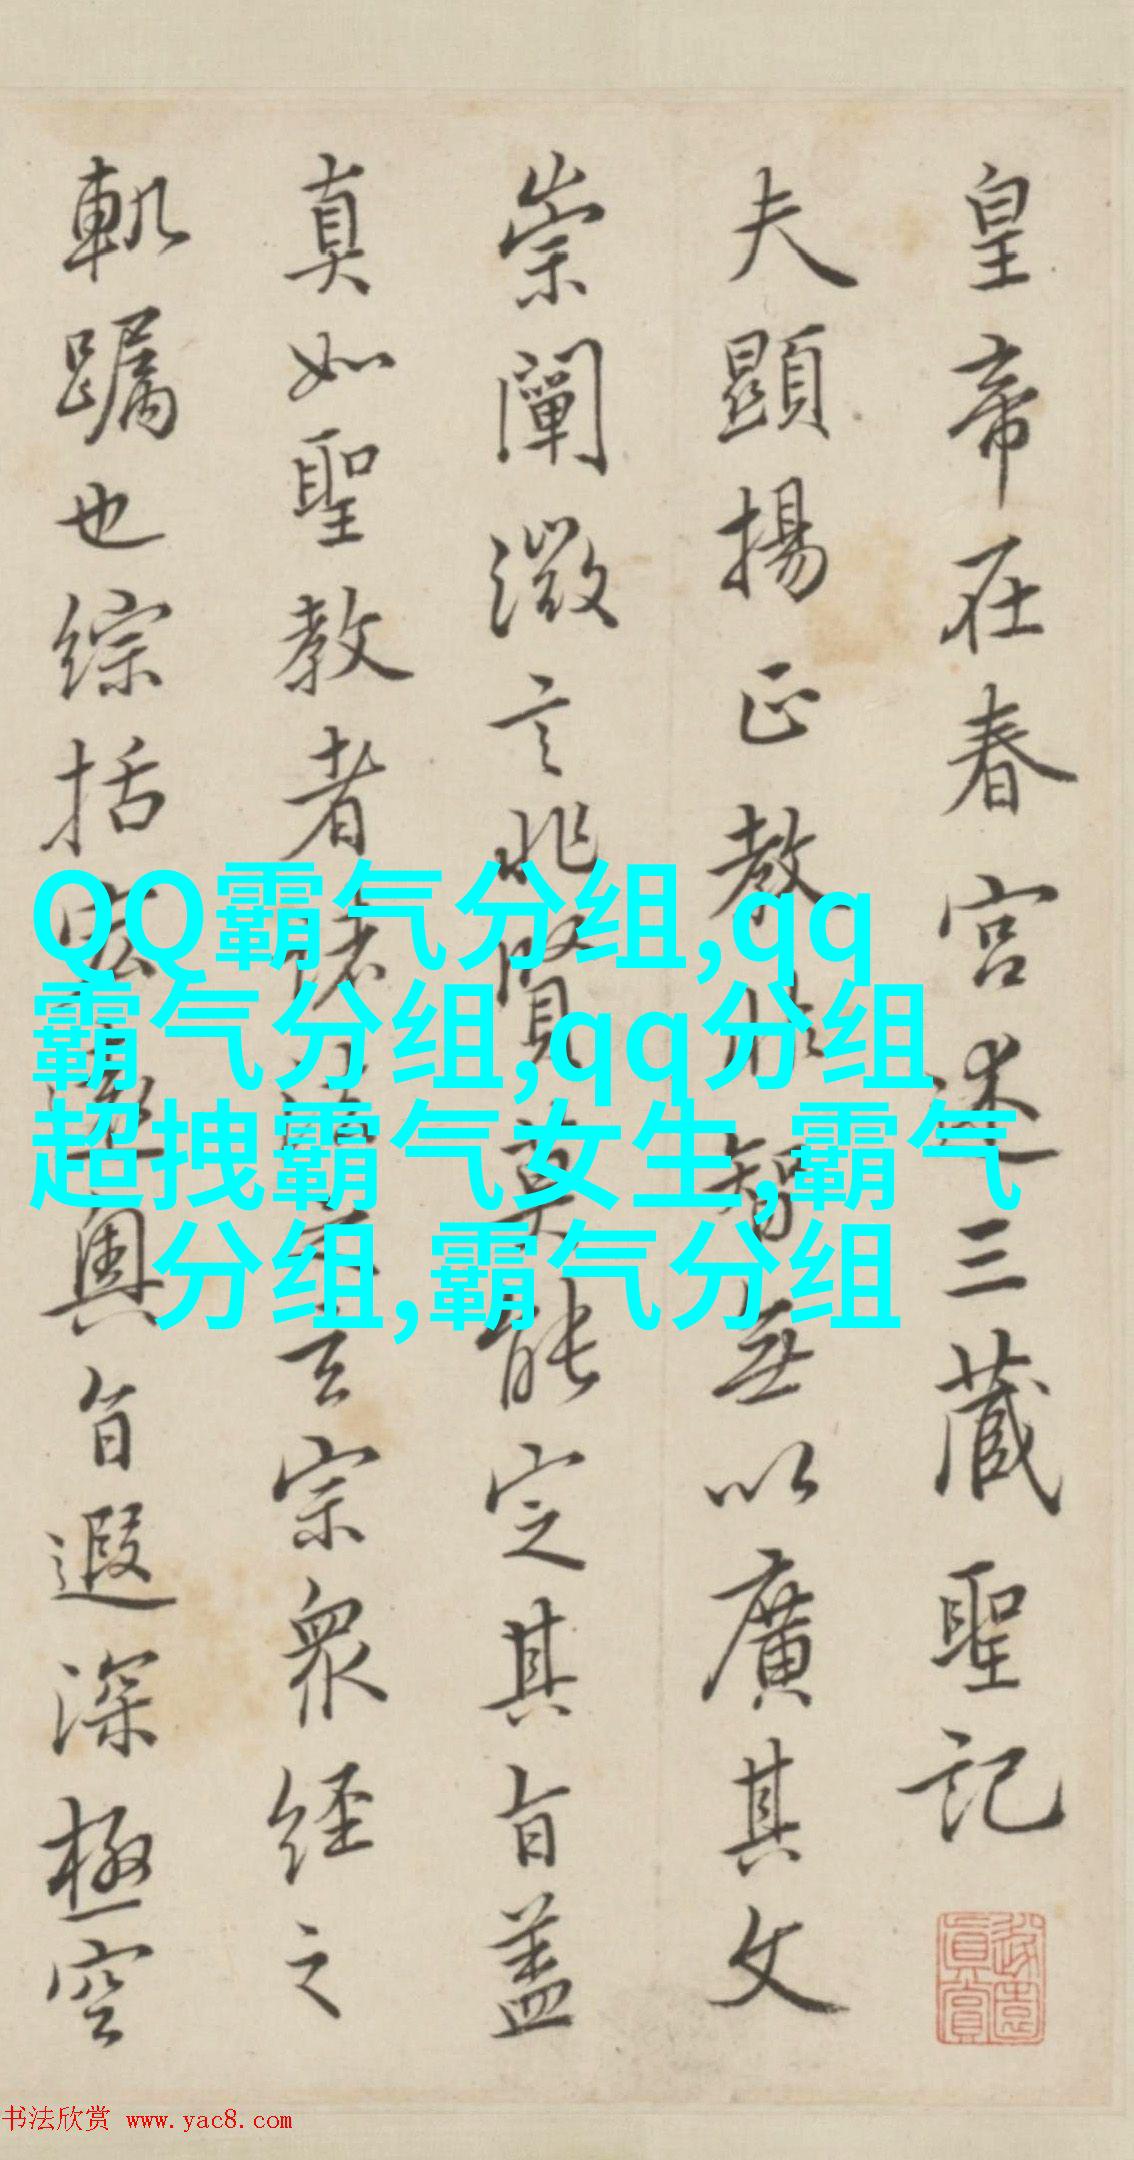 皇帝在春宮述三藏聖記
夫顯揚正教非智無以廣其文
崇闡微言非賢莫能定其旨蓋
真如聖教者諸法之玄宗眾經之
軌躅也綜括宏遠奧旨遐深極空
QQ霸气分组,qq
霸气分组,qq分组
超拽霸气女生,霸气
分组,霸气分组
书法欣赏 www.yac8.com